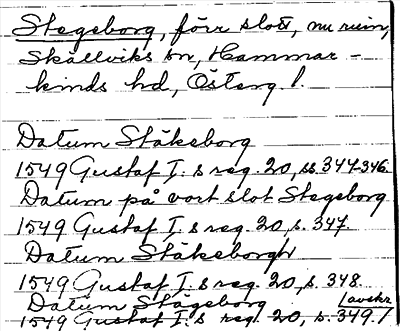 Stegeborg, förr slott, nu ruin,
Skällviks sn, Hammar-
kinds hd, Österg. l.
Datum Stäkeborg
1549 Gustaf I:s reg. 20, ss. 344-346.
Datum på vort slot Stegeborg
1549 Gustaf I:s reg. 20, s. 347.
Datum Stäkeborgh
1549 Gustaf I:s reg. 20, s. 348.
Datum Stägeborg
1549 Gustaf I:s reg. 20, s. 349./